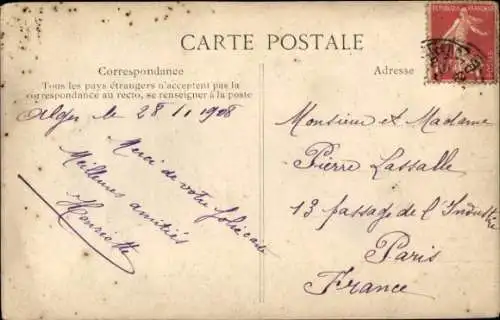 CARTE POSTALE
RÉPUBLIQUE FRANÇAISE
Correspondance
Tous les pays étrangers n'acceptent pas la
correspondance au recto, se renseigner à la poste
Adresse
Alger le 28 11 1908
Merci de votre jolie carte
Meilleures amitiés
Henriette
Monsieur et Madame
Pierre Lassalle
13 passage de l'Industrie
Paris
France